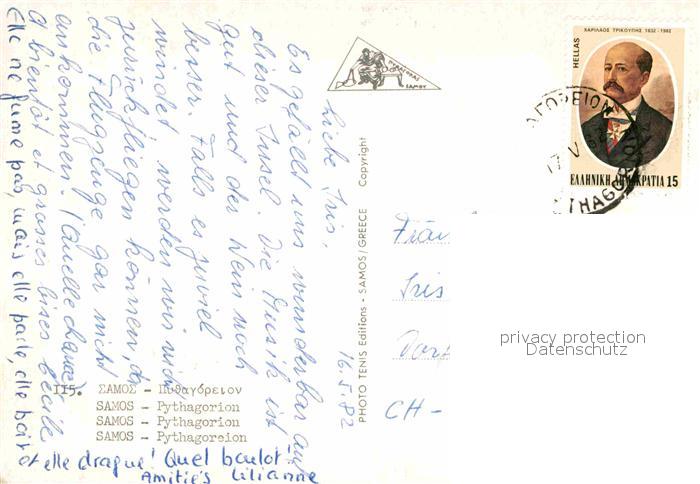 Liebe Iris,
Es gefällt uns wunderbar auf
dieser Insel. Die Musik ist
gut und der Wein noch
besser. Falls es zuviel
windet, werden wir nicht
zurückfliegen können, da
die Flugzeuge gar nicht
ankommen. (Quelle chance)
A bientôt et grosses bises Cécile
Elle ne fume pas, mais elle parle, elle boit
et elle drague! Quel boulot!
Amitiés Lilianne
16.5.82
115. ΣΑΜΟΣ – Πυθαγόρειον
SAMOS – Pythagorion
SAMOS – Pythagorion
SAMOS – Pythagoreion
PHOTO TENIS Editions - SAMOS/GREECE Copyright
ΠΥΘΑΓΟΡΑΣ
ΣΑΜΟΥ
ΧΑΡΙΛΑΟΣ ΤΡΙΚΟΥΠΗΣ 1832 - 1982
HELLAS
ΕΛΛΗΝΙΚΗ ΔΗΜΟΚΡΑΤΙΑ 15
17 V
Iris
CH-
privacy protection
Datenschutz